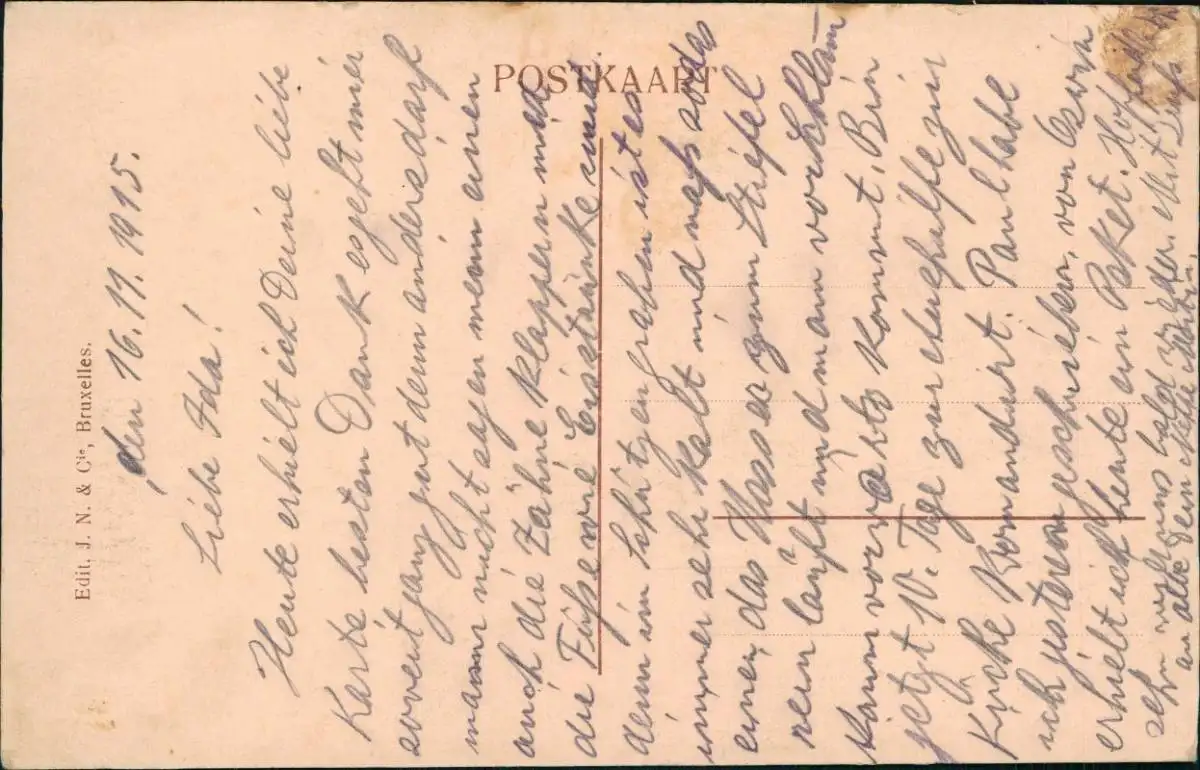 POSTKAART
Edit. J. N. & Cie, Bruxelles.
den 16.11.1915.
Liebe Ida!
Heute erhielt ich Deine liebe
Karte besten Dank es jeht mir
soweit janz jut denn anders darf
mann nicht sagen wenn einen
auch die Zähne klappern und
die Füsse wie Eisstücke sind
denn im Schützengraben ist es
immer sehr kalt und nass so das
einen das Wasser zum Stiefel
rein läuft und man vor Schlam
kaum vorwärts kommt, Bin
jetzt 10. Tage zur Aushülfe zur
Küche Komandirt. Paul habe
ich jestern geschrieben, von
erhielt ich heute ein Paket. Hoffentlich
sehn wir uns bald wieder. Mit Gruß
an alle Dein